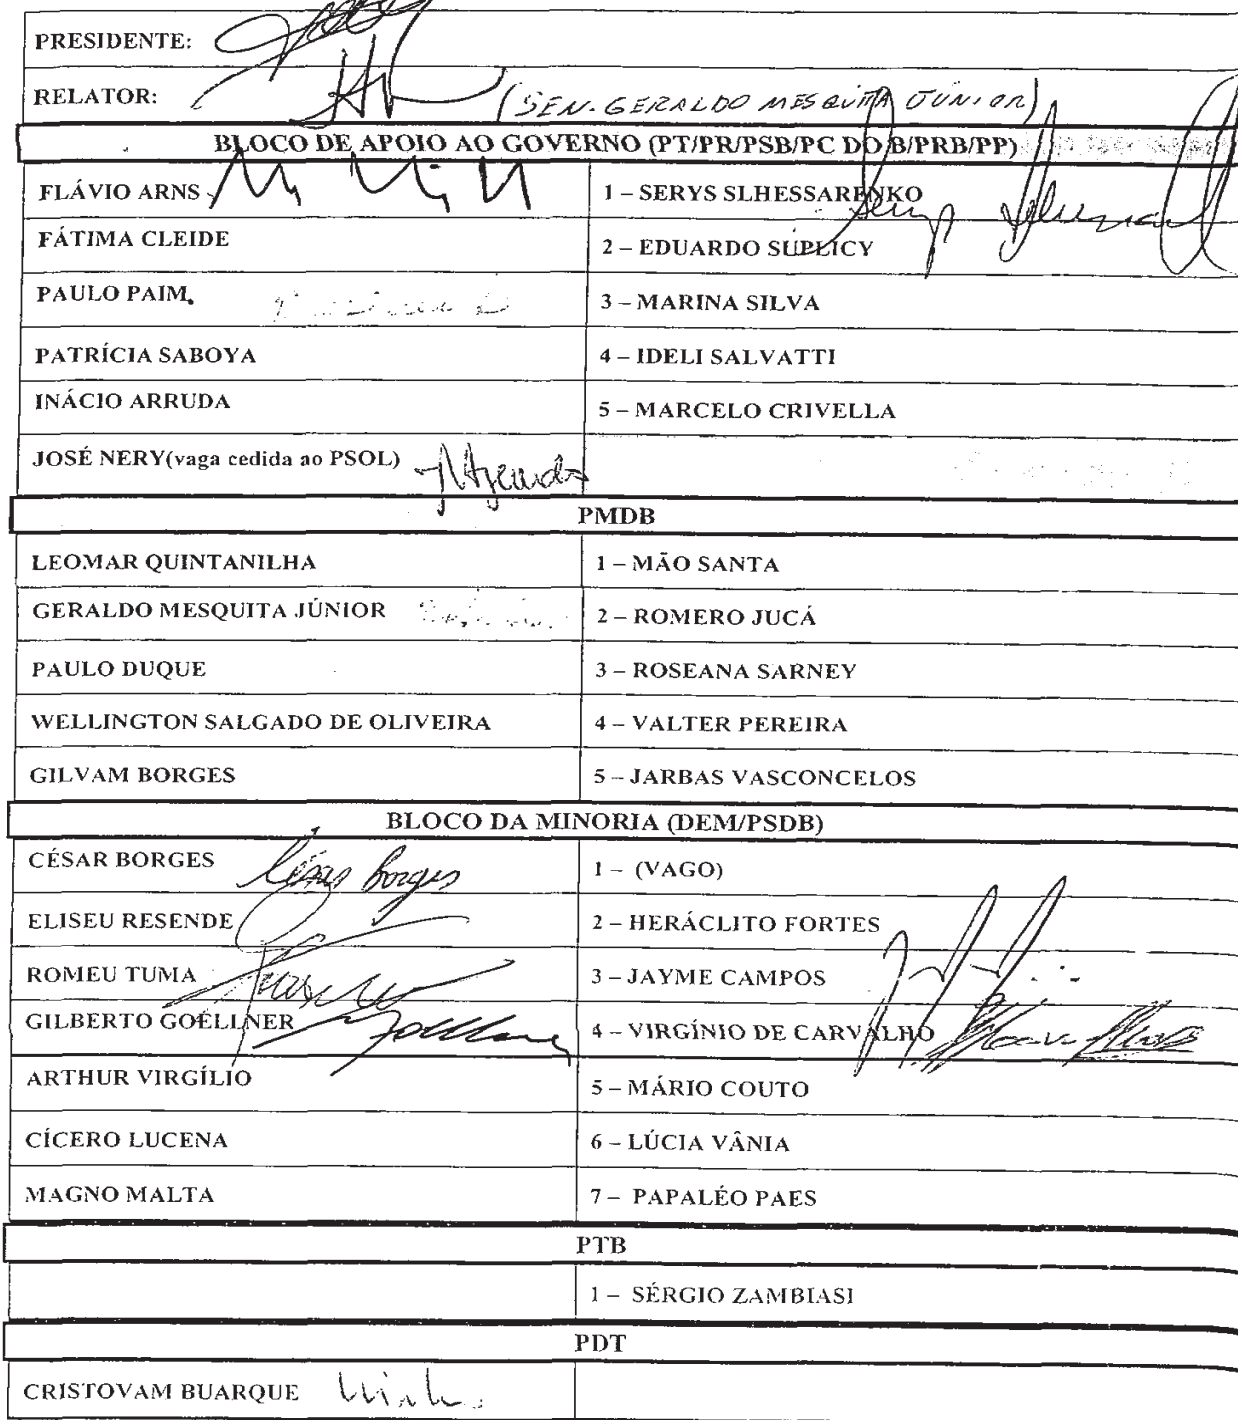 PRESIDENTE:
RELATOR: (SEN. GERALDO MESQUITA JÚNIOR)
BLOCO DE APOIO AO GOVERNO (PT/PR/PSB/PC DO B/PRB/PP)
FLÁVIO ARNS 1 – SERYS SLHESSARENKO
FÁTIMA CLEIDE 2 – EDUARDO SUPLICY
PAULO PAIM. 3 – MARINA SILVA
PATRÍCIA SABOYA 4 – IDELI SALVATTI
INÁCIO ARRUDA 5 – MARCELO CRIVELLA
JOSÉ NERY(vaga cedida ao PSOL)
PMDB
LEOMAR QUINTANILHA 1 – MÃO SANTA
GERALDO MESQUITA JÚNIOR 2 – ROMERO JUCÁ
PAULO DUQUE 3 – ROSEANA SARNEY
WELLINGTON SALGADO DE OLIVEIRA 4 – VALTER PEREIRA
GILVAM BORGES 5 – JARBAS VASCONCELOS
BLOCO DA MINORIA (DEM/PSDB)
CÉSAR BORGES César Borges 1 – (VAGO)
ELISEU RESENDE 2 – HERÁCLITO FORTES
ROMEU TUMA 3 – JAYME CAMPOS
GILBERTO GOELLNER 4 – VIRGÍNIO DE CARVALHO
ARTHUR VIRGÍLIO 5 – MÁRIO COUTO
CÍCERO LUCENA 6 – LÚCIA VÂNIA
MAGNO MALTA 7 – PAPALÉO PAES
PTB
1 – SÉRGIO ZAMBIASI
PDT
CRISTOVAM BUARQUE